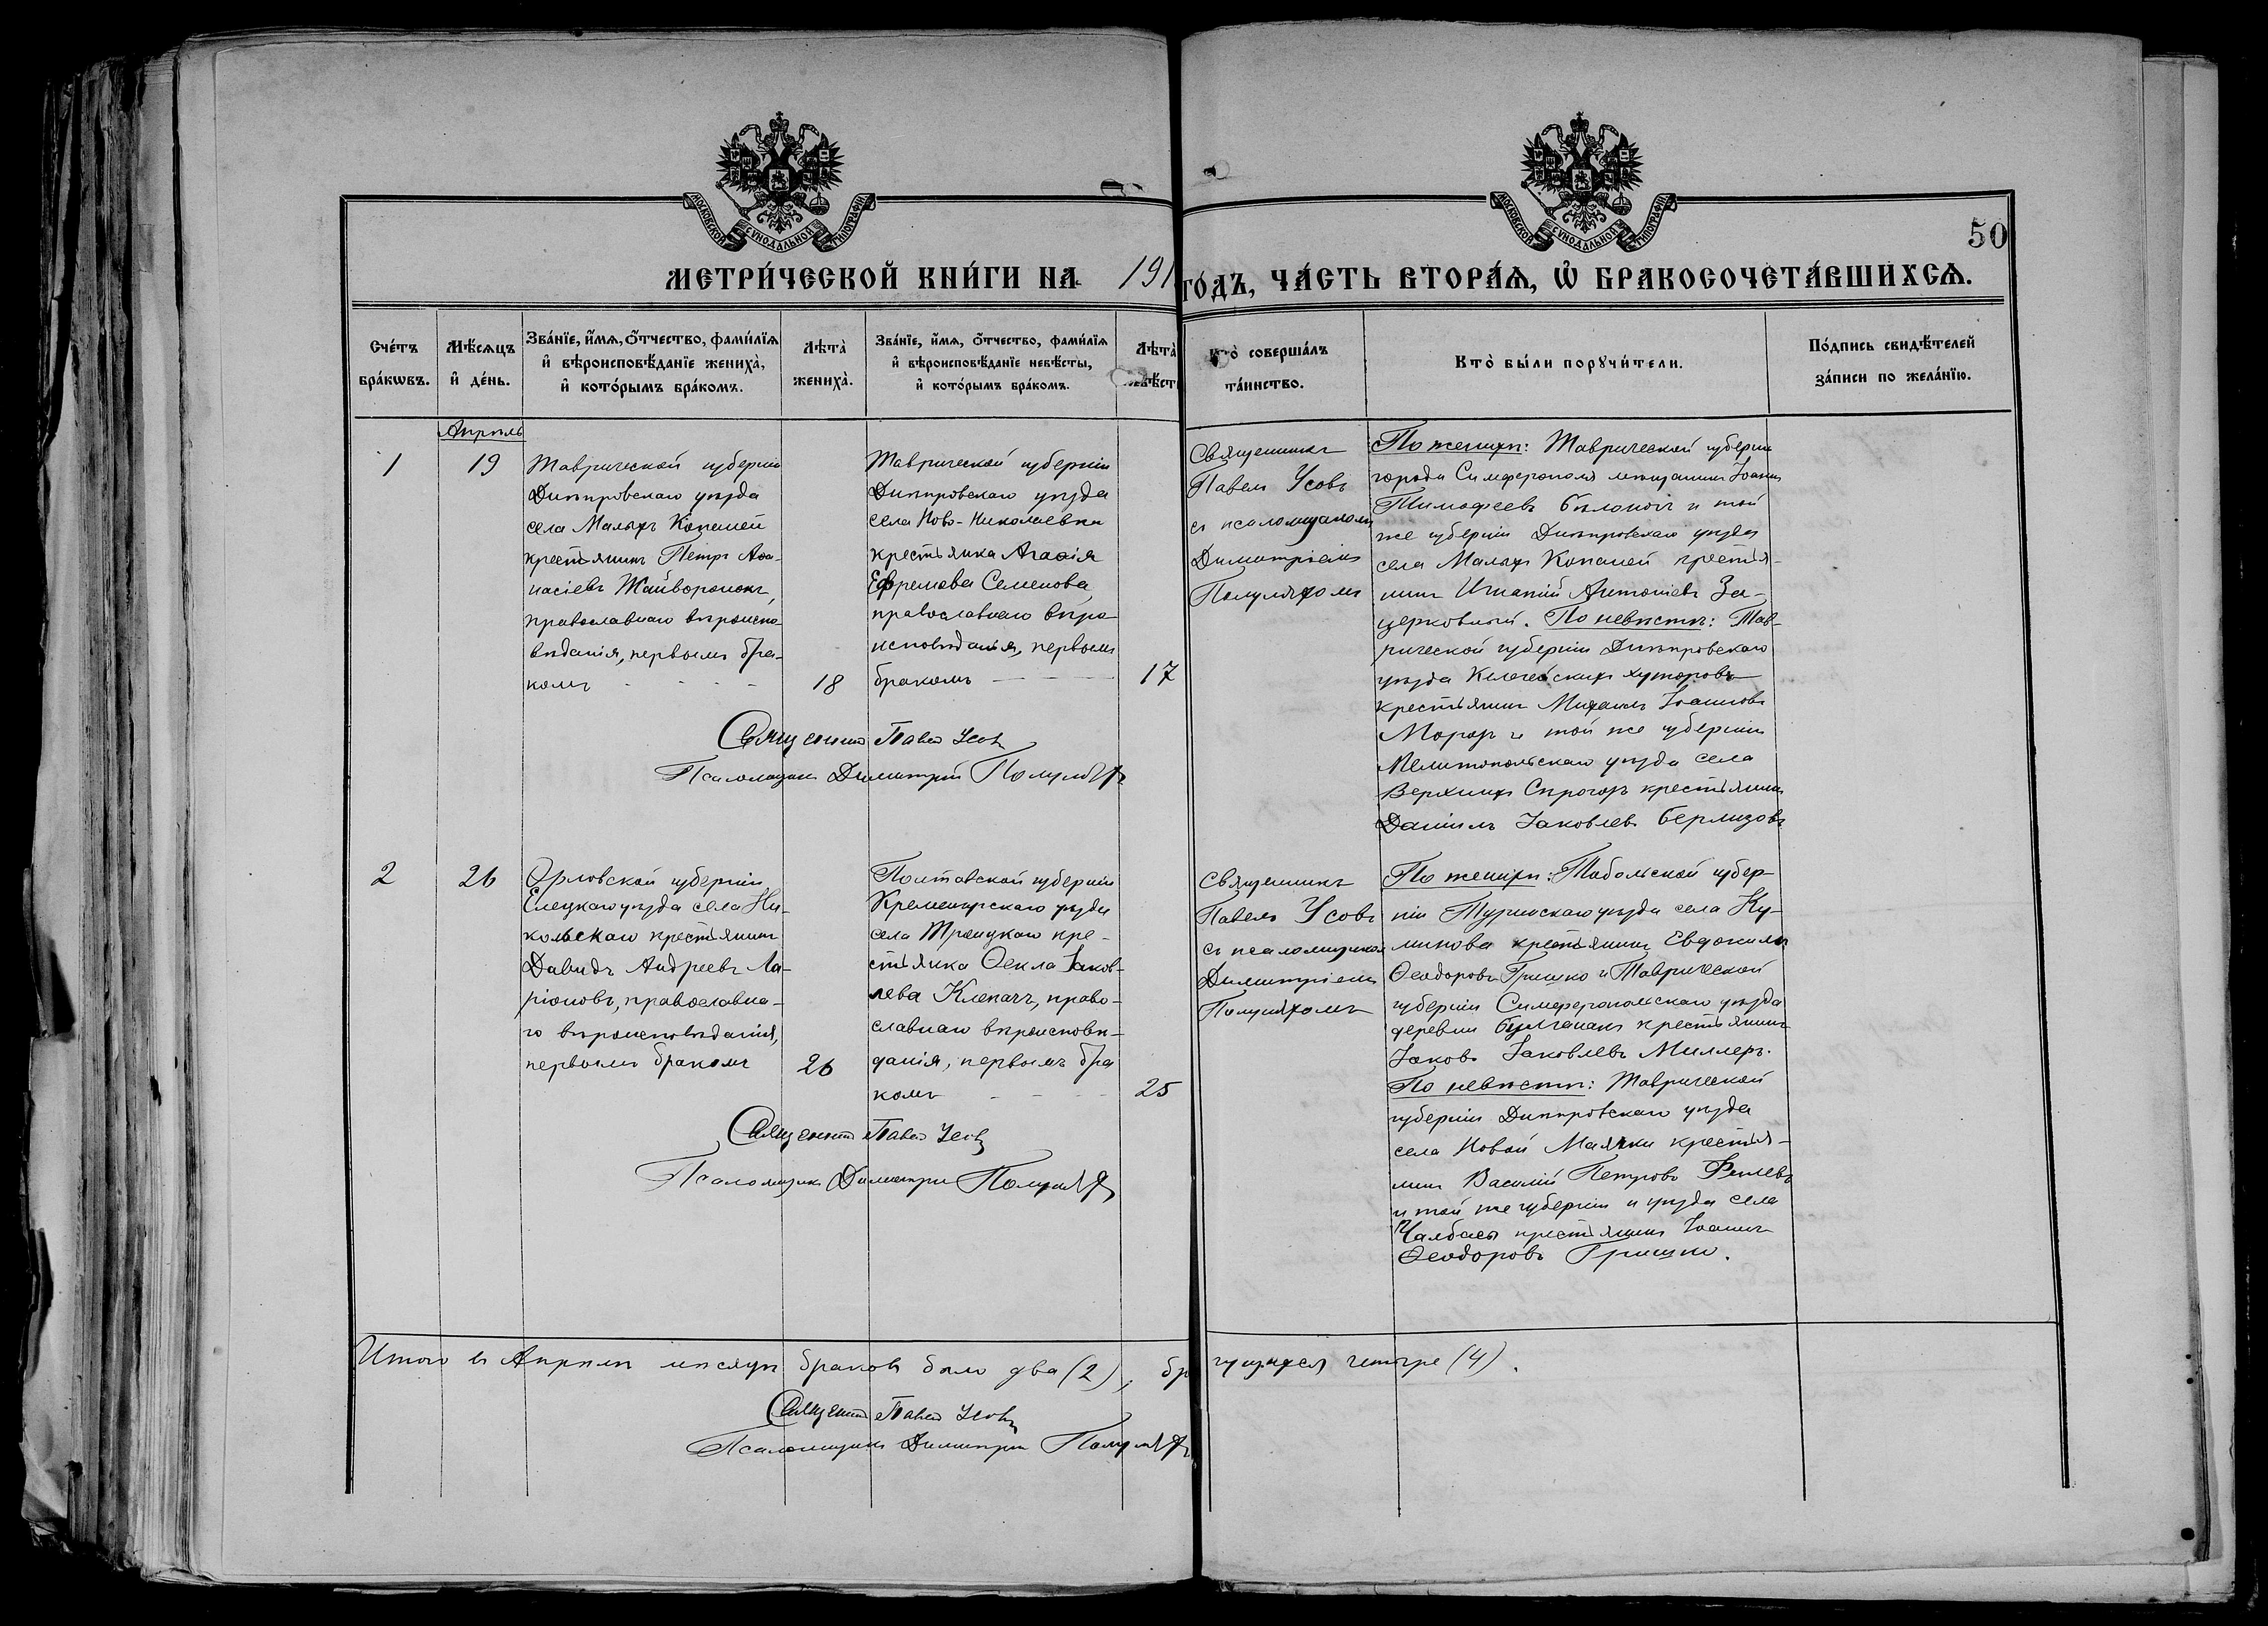 МОСКОВСКОЙ СѴНОДАЛЬНОЙ ТИПОГРАФІИ
МОСКОВСКОЙ СѴНОДАЛЬНОЙ ТИПОГРАФІИ
50
МЕТРИ́ЧЕСКОЙ КНИ́ГИ НА 191
ГО́ДЪ, ЧА́СТЬ ВТОРА́Ѧ, Ѡ҆ БРАКОСОЧЕТА́ВШИХСѦ.
Сче́тъ бра́кѡвъ.
Мѣ́сѧцъ и҆ де́нь.
Зва́нїе, и҆́мѧ, ѻ҆́тчество, фами́лїѧ
и҆ вѣроисповѣ́данїе жениха̀,
и҆ кото́рымъ бра́комъ.
Лѣта̀ жениха̀.
Зва́нїе, и҆́мѧ, ѻ҆́тчество, фами́лїѧ
и҆ вѣроисповѣ́данїе невѣ́сты,
и҆ кото́рымъ бра́комъ.
Лѣта̀ невѣ́ст
Кто̀ соверша́лъ та́инство.
Кто̀ бы́ли порꙋчи́тели.
По́дпись свидѣ́телей за́писи по жела́нїю.
Апрѣль
1
19
Таврической губерніи
Днѣпровскаго уѣзда
села Малыхъ Копаней
крестьянинъ Петръ Аѳа-
насіевъ Жайворонокъ,
православнаго вѣроиспо-
вѣданія, первымъ бра-
комъ
18
Таврической губерніи
Днѣпровскаго уѣзда
села Ново-Николаевки
крестьянка Агаѳія
Ефремова Семенова,
православнаго вѣро-
исповѣданія, первымъ
бракомъ
17
Священникъ
Павелъ Усовъ
съ псаломщикомъ
Димитріемъ
Полуляхомъ
По женихѣ: Таврической губерніи
города Симферополя мѣщанинъ Іоаннъ
Тимоѳеевъ и той
же губерніи Днѣпровскаго уѣзда
села Малыхъ Копаней крестья-
нинъ Игнатій Антоніевъ За-
церковный. По невѣстѣ: Тав-
рической губерніи Днѣпровскаго
уѣзда хуторовъ
крестьянинъ Михаилъ Іоанновъ
Морозъ и той же губерніи
Мелитопольскаго уѣзда села
Верхнихъ Сѣрогозъ крестьянинъ
Даніилъ Іаковлевъ Берлизовъ
Священникъ Павел Усовъ
Псаломщикъ Димитрій Полулях
2
26
Орловской губерніи
Елецкаго уѣзда села Ни-
кольскаго крестьянинъ
Давидъ Андреевъ Ла-
ріоновъ, православна-
го вѣроисповѣданія,
первымъ бракомъ
26
Полтавской губерніи
Кременчугскаго уѣзда
села Троицкаго кре-
стьянка Ѳекла Іаков-
лева Клепачъ, право-
славнаго вѣроисповѣ-
данія, первымъ бра
комъ
25
Священникъ
Павелъ Усовъ
съ псаломщикомъ
Димитріемъ
Полуляхомъ
По женихѣ: Тобольской губер-
ніи Туринскаго уѣзда села Ку-
минова крестьянинъ Евдокимъ
Ѳеодоровъ Гришко и Таврической
губерніи Симферопольскаго уѣзда
деревни Булганакъ крестьянинъ
Іаковъ Іаковлевъ Миллеръ.
По невѣстѣ: Таврической
губерніи Днѣпровскаго уѣзда
села Новой Маячки крестья-
нинъ Василій Петровъ
и той же губерніи и уѣзда села
Чалбасы крестьянинъ Іоаннъ
Ѳеодоровъ Гришко.
Священникъ Павел Усовъ
Псаломщикъ Димитрій Полулях
Итого въ Апрѣлѣ мѣсяцѣ браковъ было два (2), бр
чущихся четыре (4).
Священникъ Павел Усовъ
Псаломщикъ Димитрій Полулях